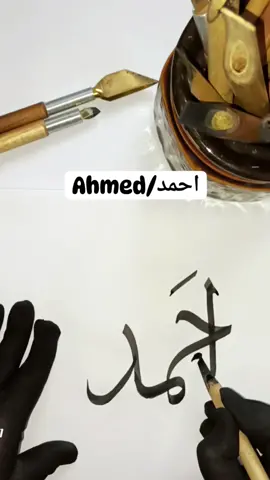 Ahmed/احمد
أحمد